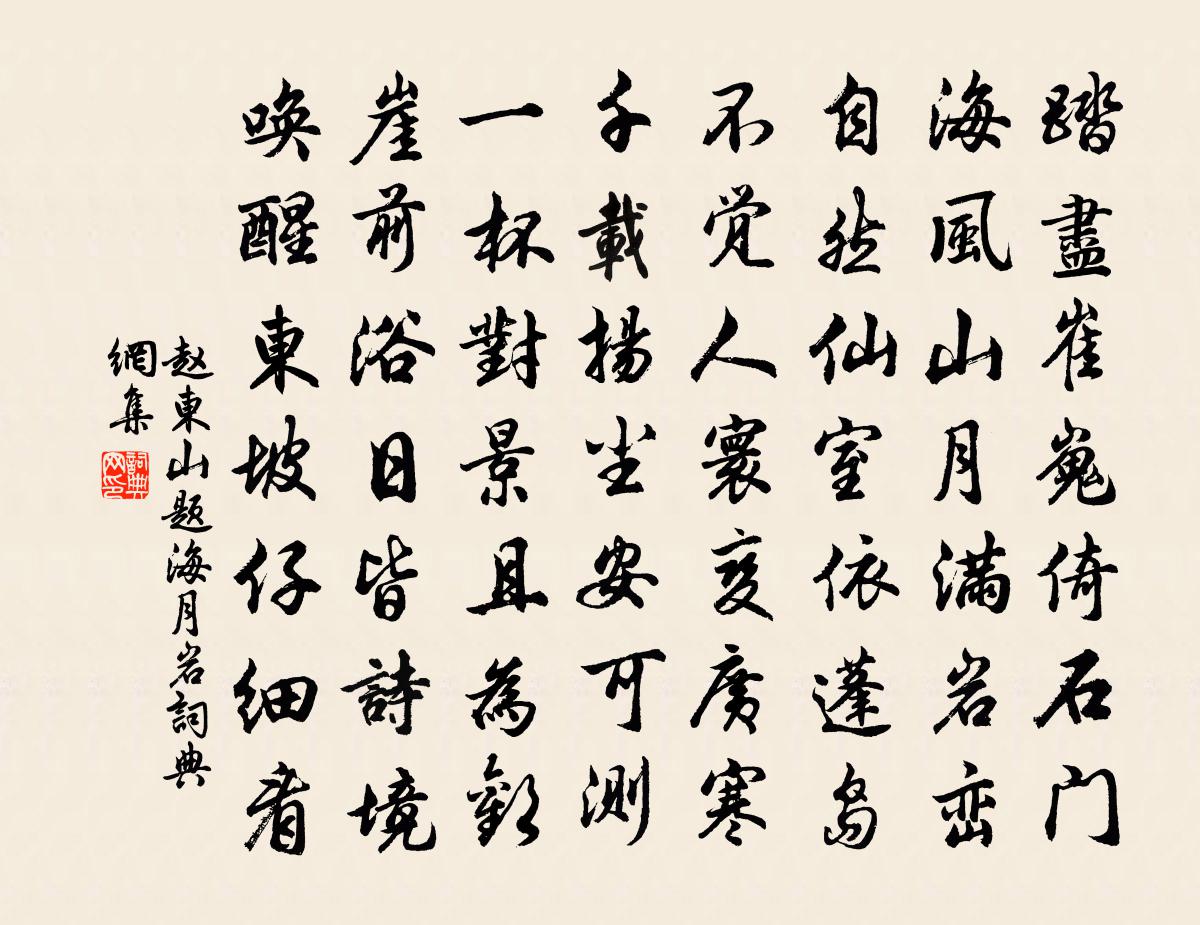 踏盡崔嵬倚石门
海風山月满岩峦
自然仙室依蓬岛
不觉人寰变廣寒
千載揚尘安可测
一杯對景且為歡
崖前浴日皆詩境
唤醒東坡仔细看
赵東山题海月岩詞典
網集
詞典
网印